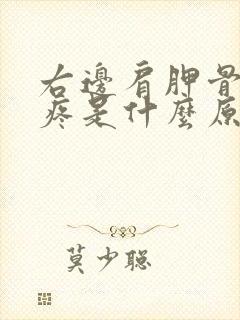 右邊肩胛骨
疼是什麼原
莫少聰